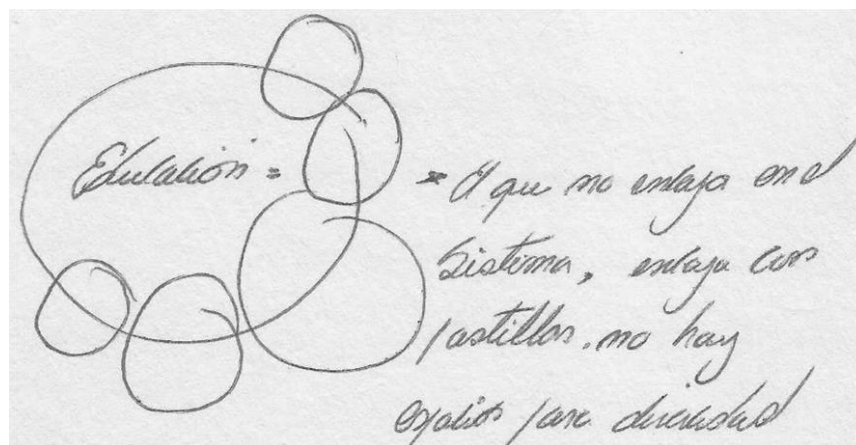 Educación = = El que no encaja en el
Sistema, encaja con
pastillas. no hay
espacios para diversidad